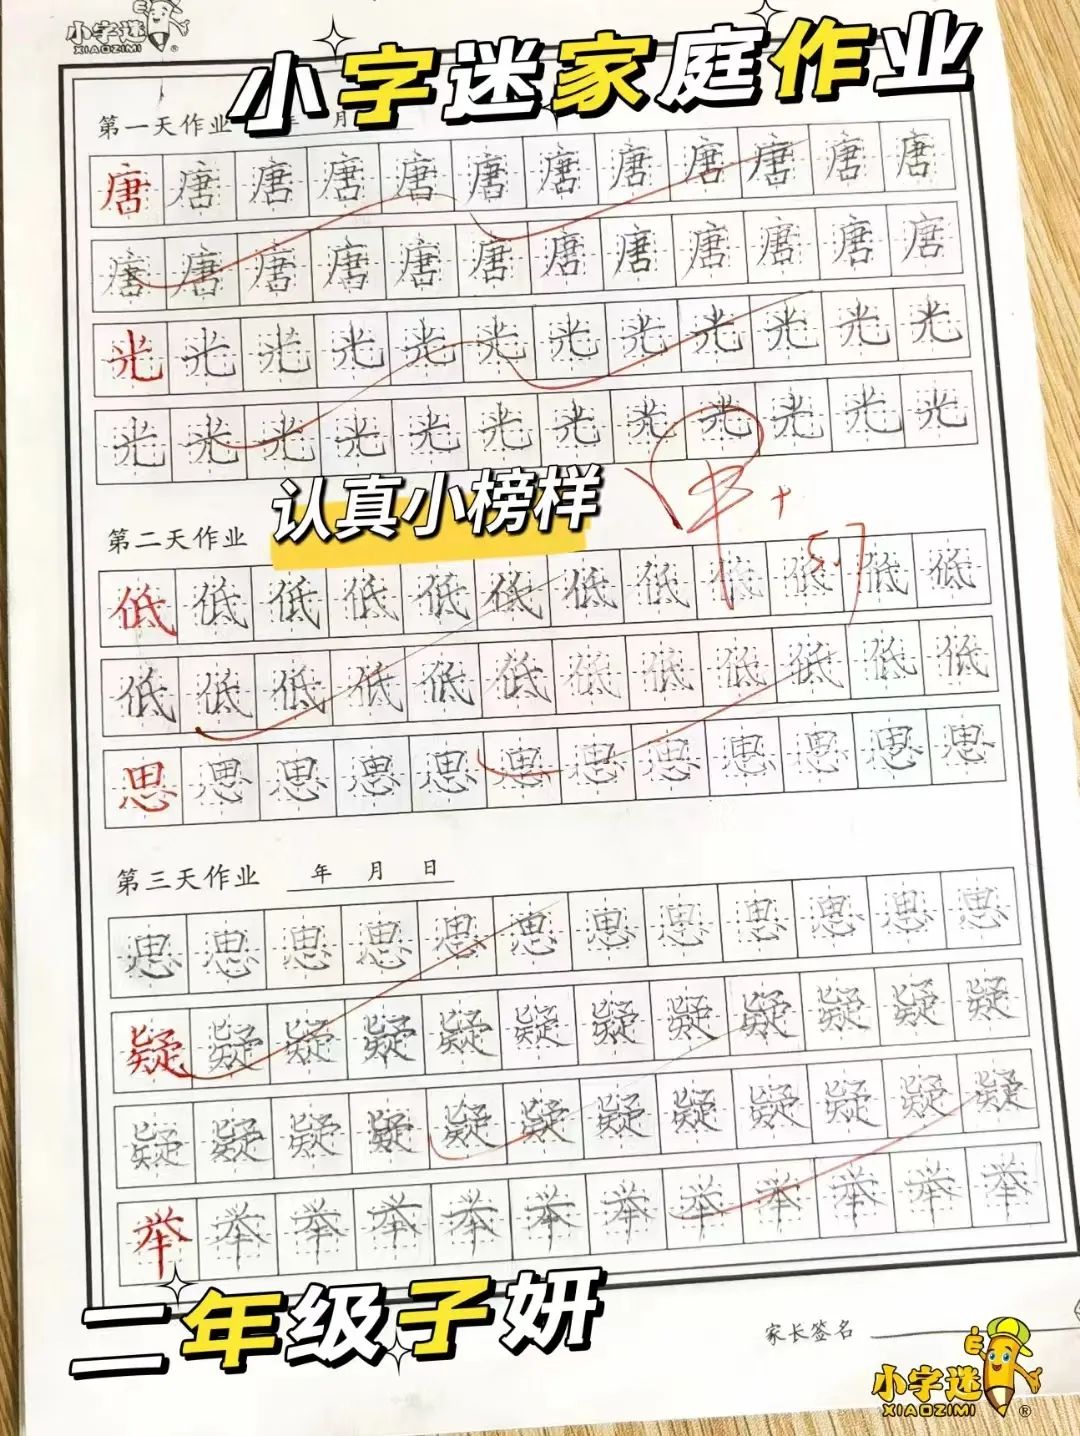 小字迷
XIAOZIMI®
小字迷家庭作业
第一天作业 年 月
唐唐唐唐唐唐唐唐唐唐唐唐
唐唐唐唐唐唐唐唐唐唐唐唐
光光光光光光光光光光光光
光光光光光光光光光光光光
甲+
认真小榜样
第二天作业
低低低低低低低低低低低低
低低低低低低低低低低低低
思思思思思思思思思思思思
第三天作业 年 月 日
思思思思思思思思思思思思
疑疑疑疑疑疑疑疑疑疑疑疑
疑疑疑疑疑疑疑疑疑疑疑疑
举举举举举举举举举举举举
二年级子妍
家长签名
小字迷
XIAOZIMI®